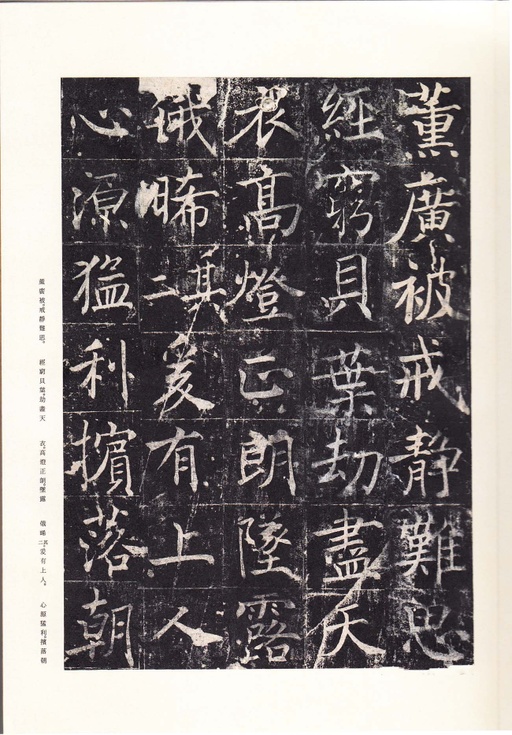 薰廣被戒静難思
經窮貝葉劫盡天
衣髙燈正朗墜露
俄晞其二爰有上人
心源猛利擯落朝
薰廣被。戒靜難思。
經窮貝葉。劫盡天
衣。高燈正朗。墜露
俄晞。其二。爰有上人。
心源猛利。擯落朝